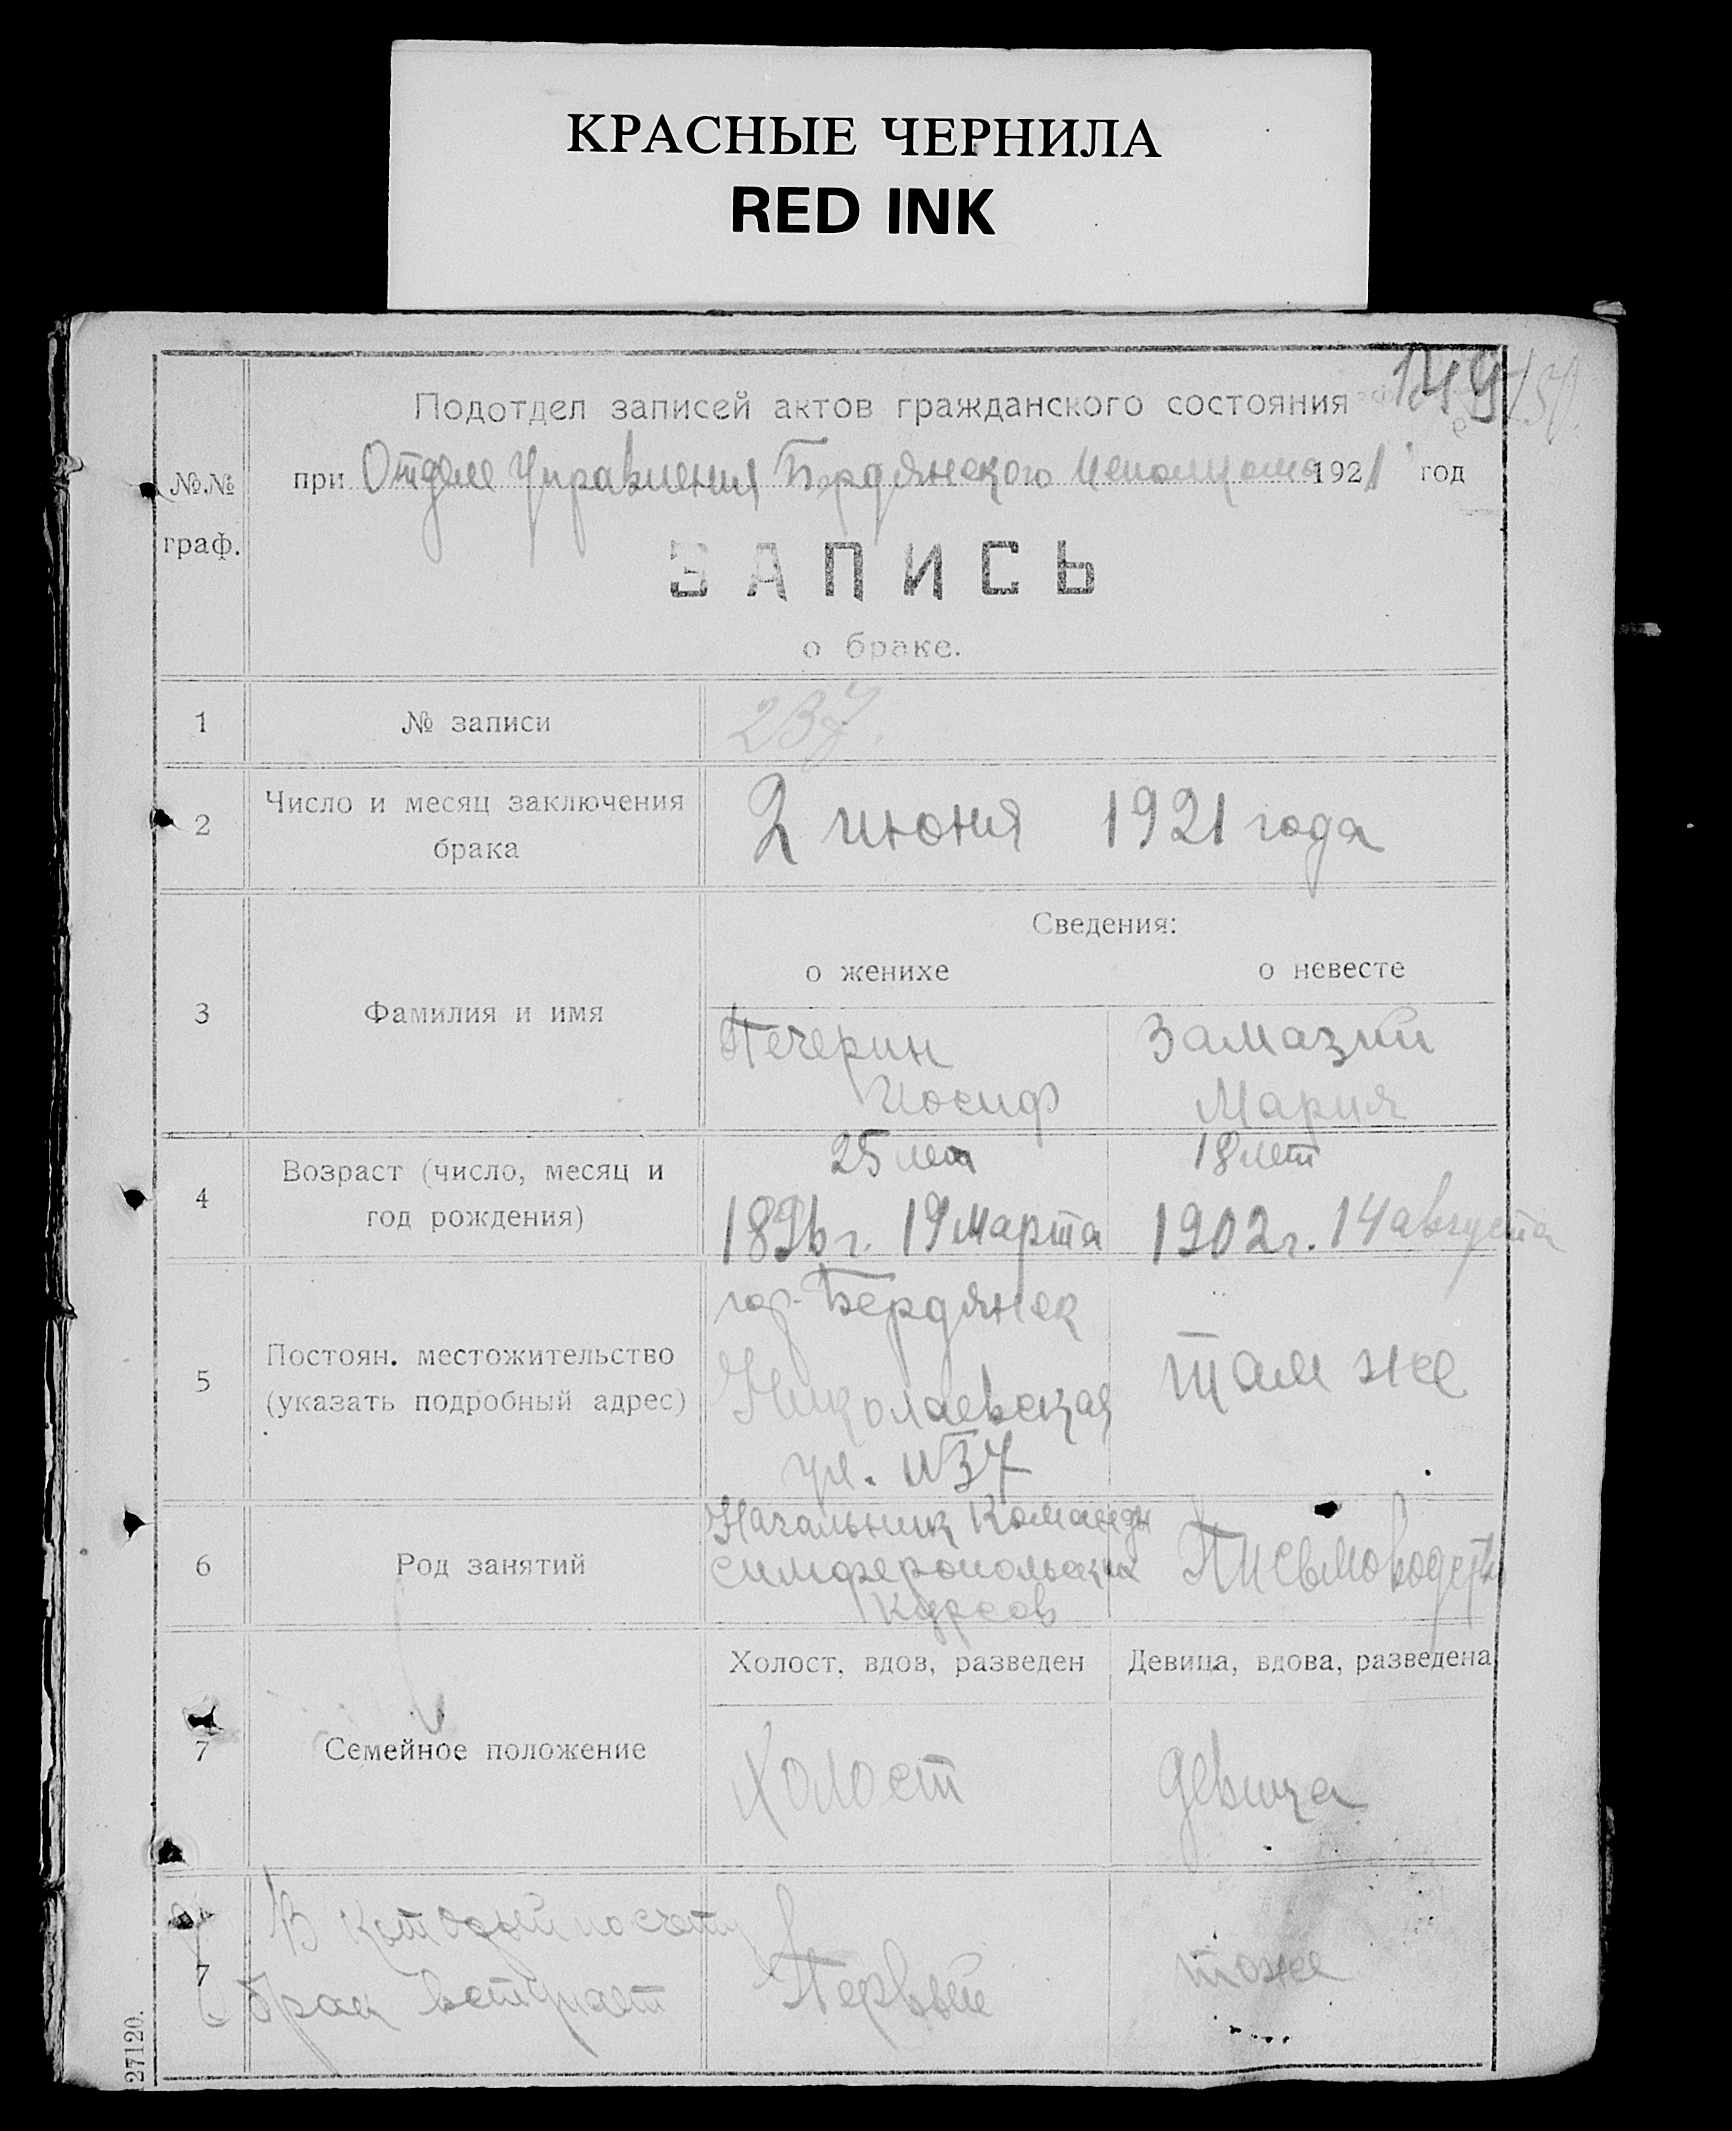 КРАСНЫЕ ЧЕРНИЛА
RED INK
149 150.
Подотдел записей актов гражданского состояния
№№ граф.
при Отделе Управления Бердянского Исполкома 1921 год
ЗАПИСЬ
о браке.
1 № записи 237.
2 Число и месяц заключения брака 2 июня 1921 года
Сведения:
о женихе о невесте
3 Фамилия и имя
Печерин Замазий
Иосиф Мария
4 Возраст (число, месяц и год рождения)
25 лет 18 лет
1896 г. 19 марта 1902 г. 14 августа
5 Постоян. местожительство
(указать подробный адрес)
гор. Бердянск там же
Николаевская
ул. №37
6 Род занятий
Начальник Команды
Симферопольских
Курсов
Письмоводет.
Холост, вдов, разведен Девица, вдова, разведена
7 Семейное положение Холост девица
7 В который по счету
брак вступает Первый тоже
27120.